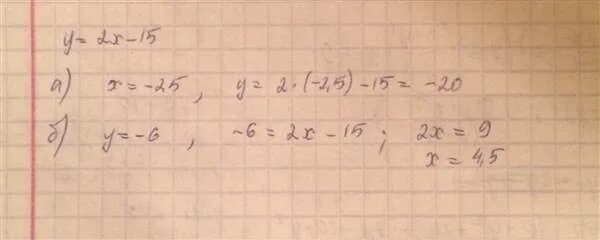 y = 2x - 15
а) x = -2,5, y = 2 · (-2,5) - 15 = -20
б) y = -6, -6 = 2x - 15; 2x = 9
x = 4,5